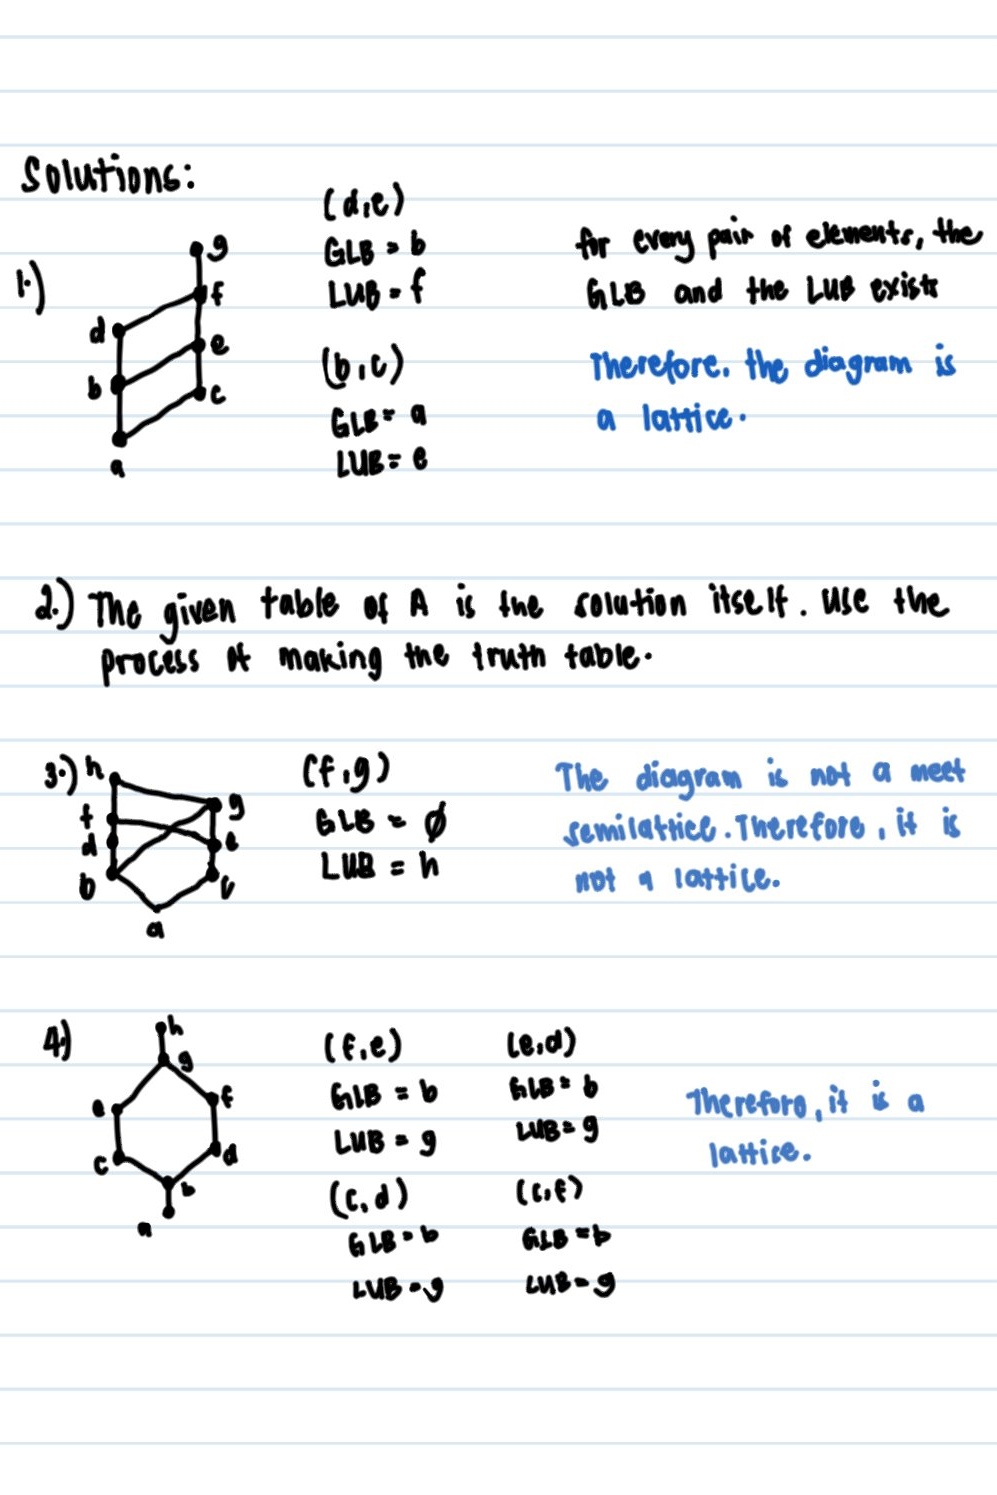 Solutions:
1.)
g
f
d
e
b
c
a
(d,e)
GLB = b
LUB = f
(b,c)
GLB = a
LUB = e
for every pair of elements, the
GLB and the LUB exists
Therefore, the diagram is
a lattice.
2.) The given table of A is the solution itself. Use the
process of making the truth table.
3.)
h
g
f
d
e
b
c
a
(f,g)
GLB = ∅
LUB = h
The diagram is not a meet
semilattice. Therefore, it is
not a lattice.
4.)
h
g
e
f
c
d
b
a
(f,e)
GLB = b
LUB = g
(c,d)
GLB = b
LUB = g
(e,d)
GLB = b
LUB = g
(c,f)
GLB = b
LUB = g
Therefore, it is a
lattice.